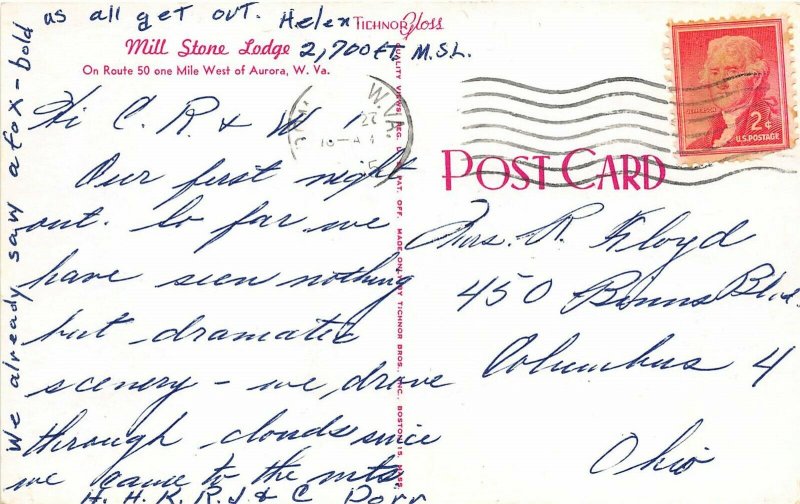 as all get out. Helen
TICHNOR Gloss
Mill Stone Lodge 2,700 Ft. M.S.L.
On Route 50 one Mile West of Aurora, W. Va.
Hi C. R. & W.
Our first night
out. So far we
have seen nothing
but dramatic
scenery - we drove
through clouds since
we came to the mts
H. H. K. R. J. & C Dorr
We already saw a fox - bold
QUALITY VIEWS, REG. U. S. PAT. OFF. MADE ONLY BY TICHNOR BROS. INC. BOSTON 15, MASS.
W. VA.
POST CARD
JEFFERSON
2¢
U.S. POSTAGE
Mrs. R. Floyd
450 Binns Blvd.
Columbus 4
Ohio